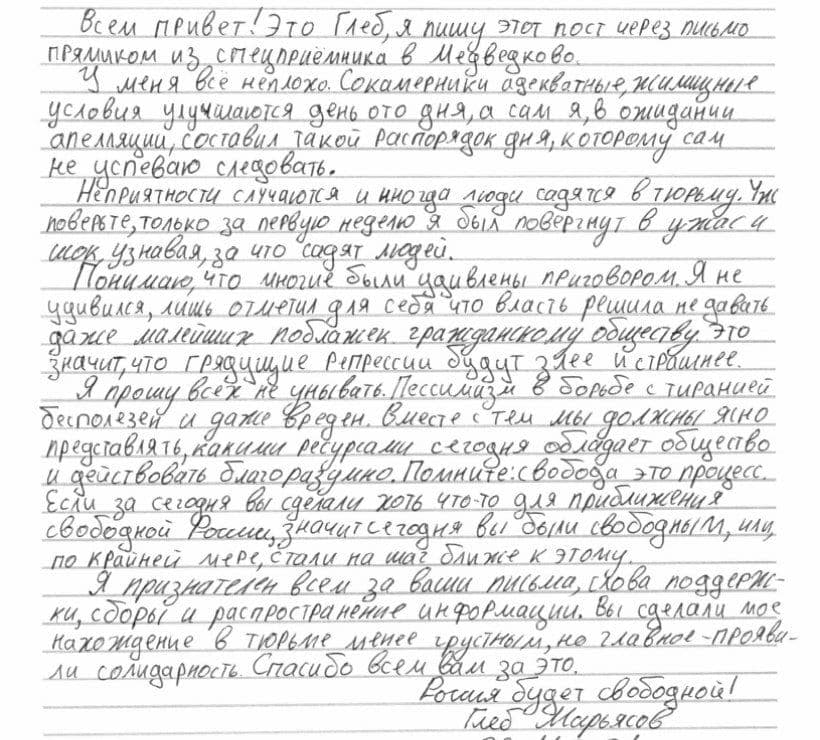 Всем привет! Это Глеб, я пишу этот пост через письмо
прямиком из спецприёмника в Медведково.
У меня всё неплохо. Сокамерники адекватные, жилищные
условия улучшаются день ото дня, а сам я, в ожидании
апелляции, составил такой распорядок дня, которому сам
не успеваю следовать.
Неприятности случаются и иногда люди садятся в тюрьму. Уж
поверьте, только за первую неделю я был повергнут в ужас и
шок, узнавая, за что садят людей.
Понимаю, что многие были удивлены приговором. Я не
удивился, лишь отметил для себя что власть решила не давать
даже малейших поблажек гражданскому обществу. Это
значит, что грядущие репрессии будут злее и страшнее.
Я прошу всех не унывать. Пессимизм в борьбе с тиранией
бесполезен и даже вреден. Вместе с тем мы должны ясно
представлять, какими ресурсами сегодня обладает общество
и действовать благоразумно. Помните: свобода это процесс.
Если за сегодня вы сделали хоть что-то для приближения
свободной России, значит сегодня вы были свободным, или,
по крайней мере, стали на шаг ближе к этому.
Я признателен всем за ваши письма, слова поддерж-
ки, сборы и распространение информации. Вы сделали мое
нахождение в тюрьме менее грустным, но главное - прояви-
ли солидарность. Спасибо всем вам за это.
Россия будет свободной!
Глеб Марьясов